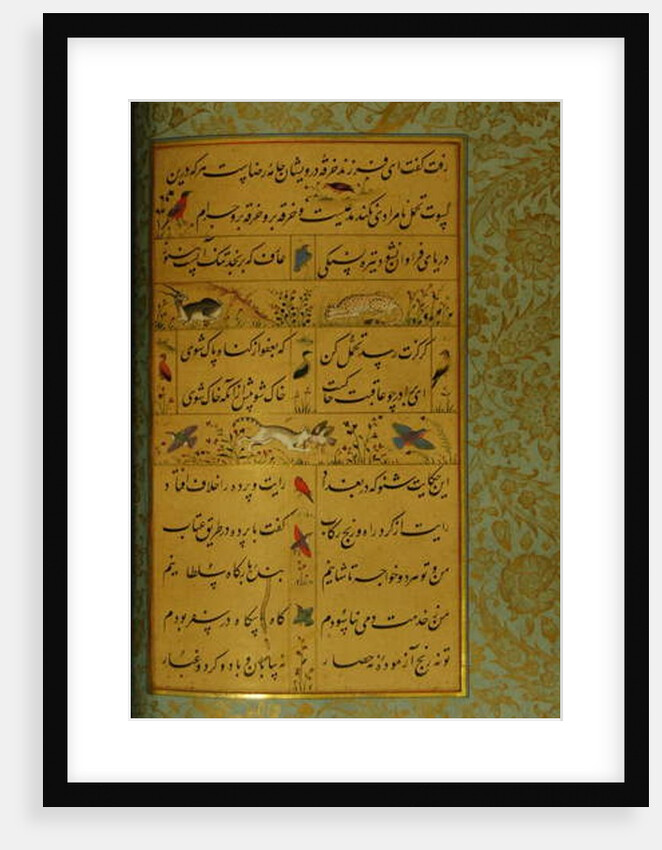 رفت گفت ای فرزند خرقه درویشان جامهٔ رضاست هر که درین
کسوت تحمل نامرادی نکند مدعیست و خرقه برو و خرقه برو حرام
دریای فراوان نشود تیره بسنگ عارف که برنجد تنک آبست هنوز
گر گزندت رسد تحمل کن که بعفو از گناه پاک شوی
ای برادر چو عاقبت خاکست خاک شو پیش از آنکه خاک شوی
این حکایت شنو که در بغداد رایت و پرده را خلاف افتاد
رایت از گرد راه و رنج رکاب گفت با پرده در طریق عتاب
من و تو هر دو خواجه تاشانیم بندهٔ بارگاه سلطانیم
من ز خدمت دمی نیاسودم گاه و بیگاه در سفر بودم
تو نه رنج آزمودهٔ نه حصار نه بیابان و باد و گرد و غبار